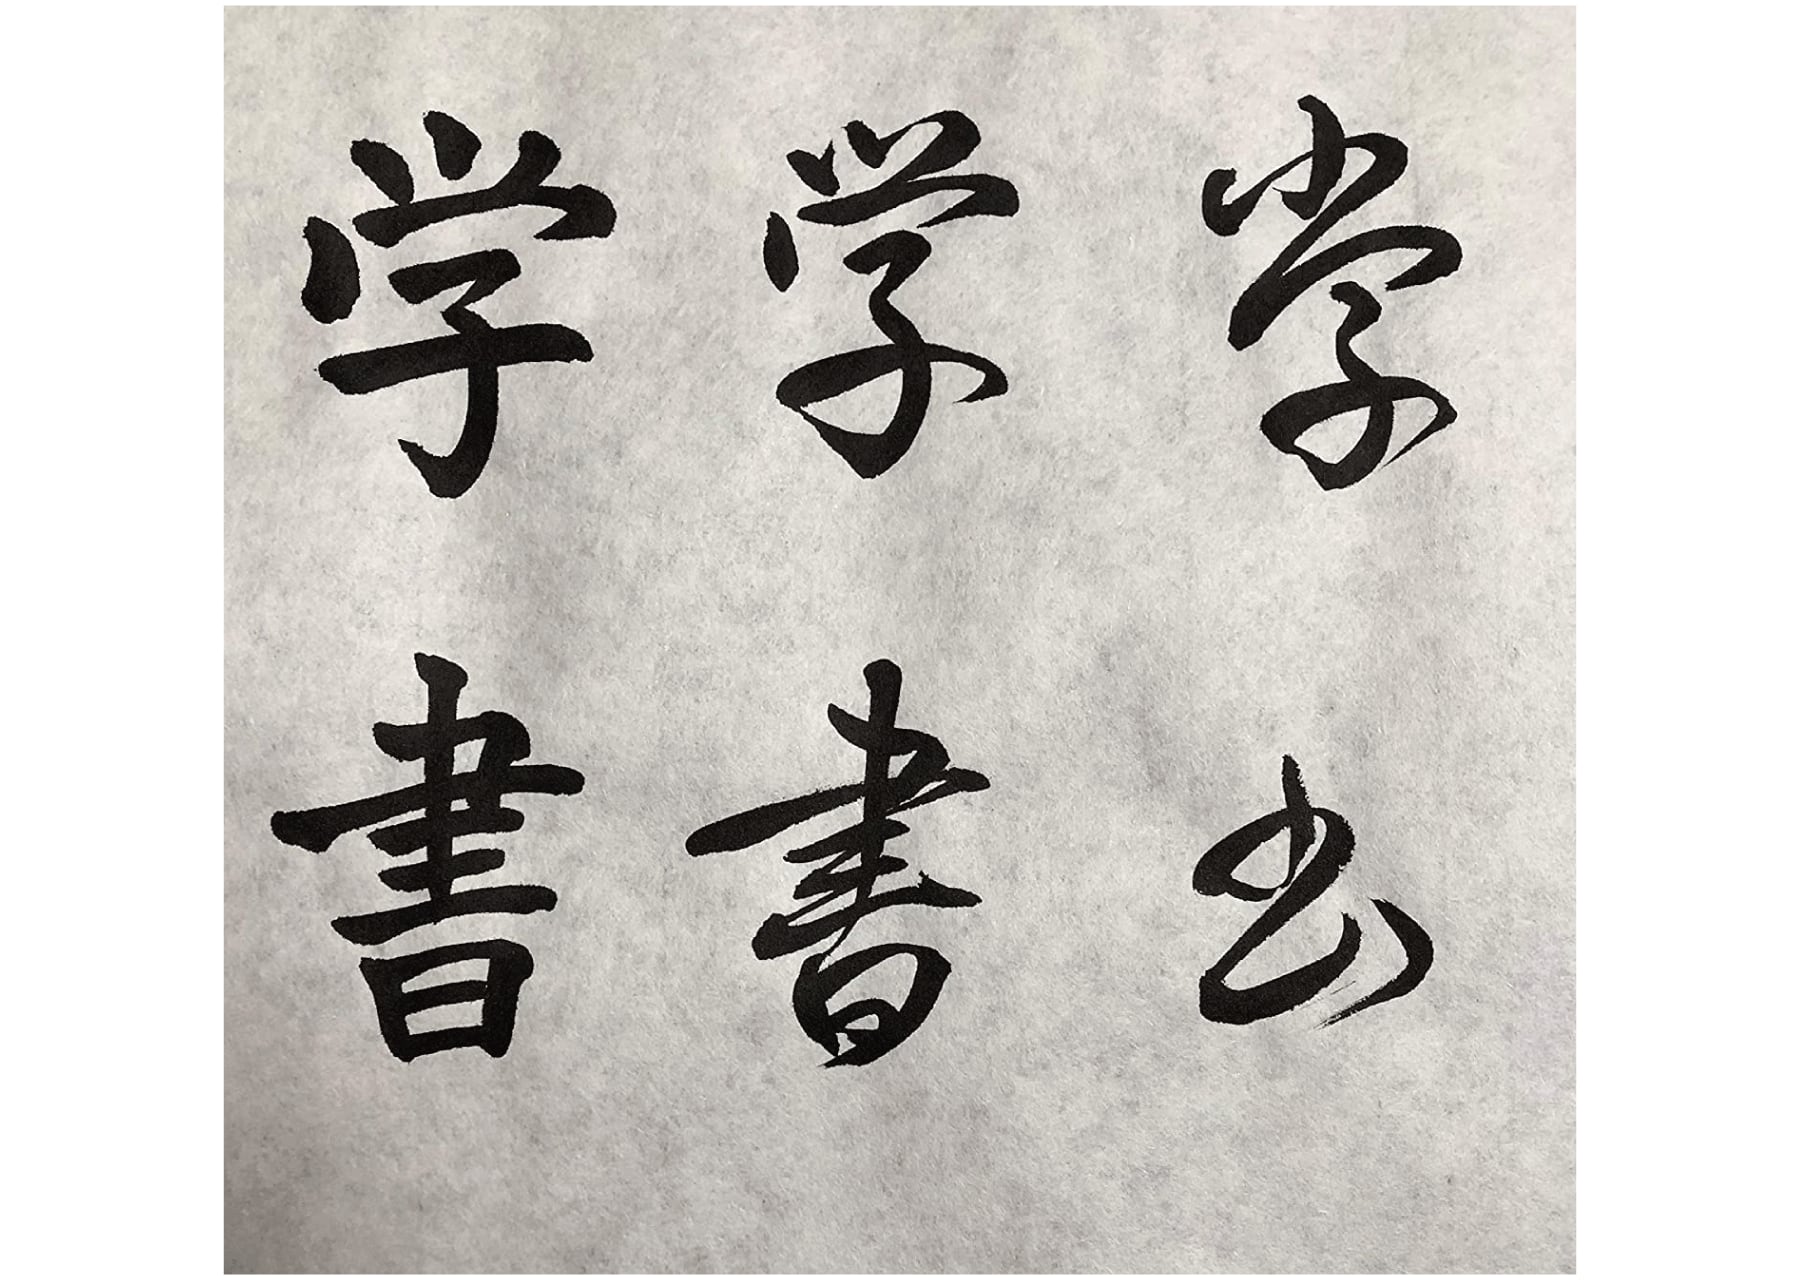 学 学 学
書 書 書